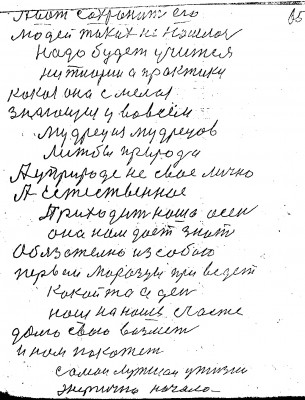 65
А вот сохранить его
людей таких не нашлось
Надо будет учится
ни тиории а практики
какая она смелая
знающия у вовсём
Мудрец из мудрецов
Литбы природи
А у природе не свое лично
А естественное
Приходит наша осен
она нам даёт знат
Обязателно из собою
первыи морозци приведет
Какой то ден
наш на наше счастье
даль свою возмет
и нам покажет
самаи лутшаи у жизни
энергично начало